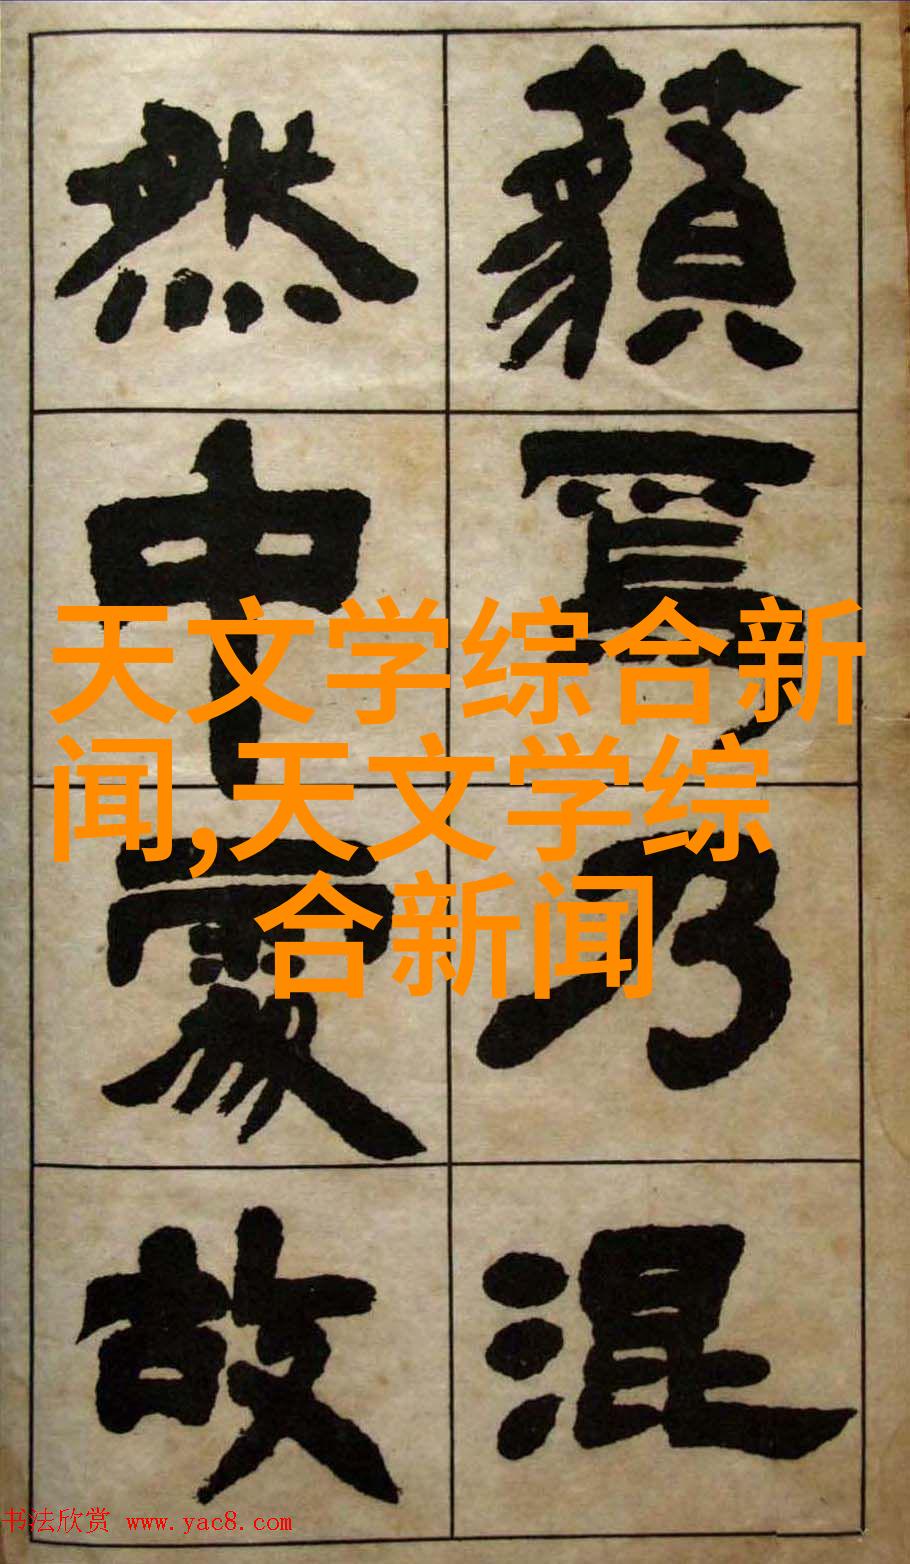 藐焉乃混
然中處故
天文学综合新
闻,天文学综
合新闻
书法欣赏 www.yac8.com